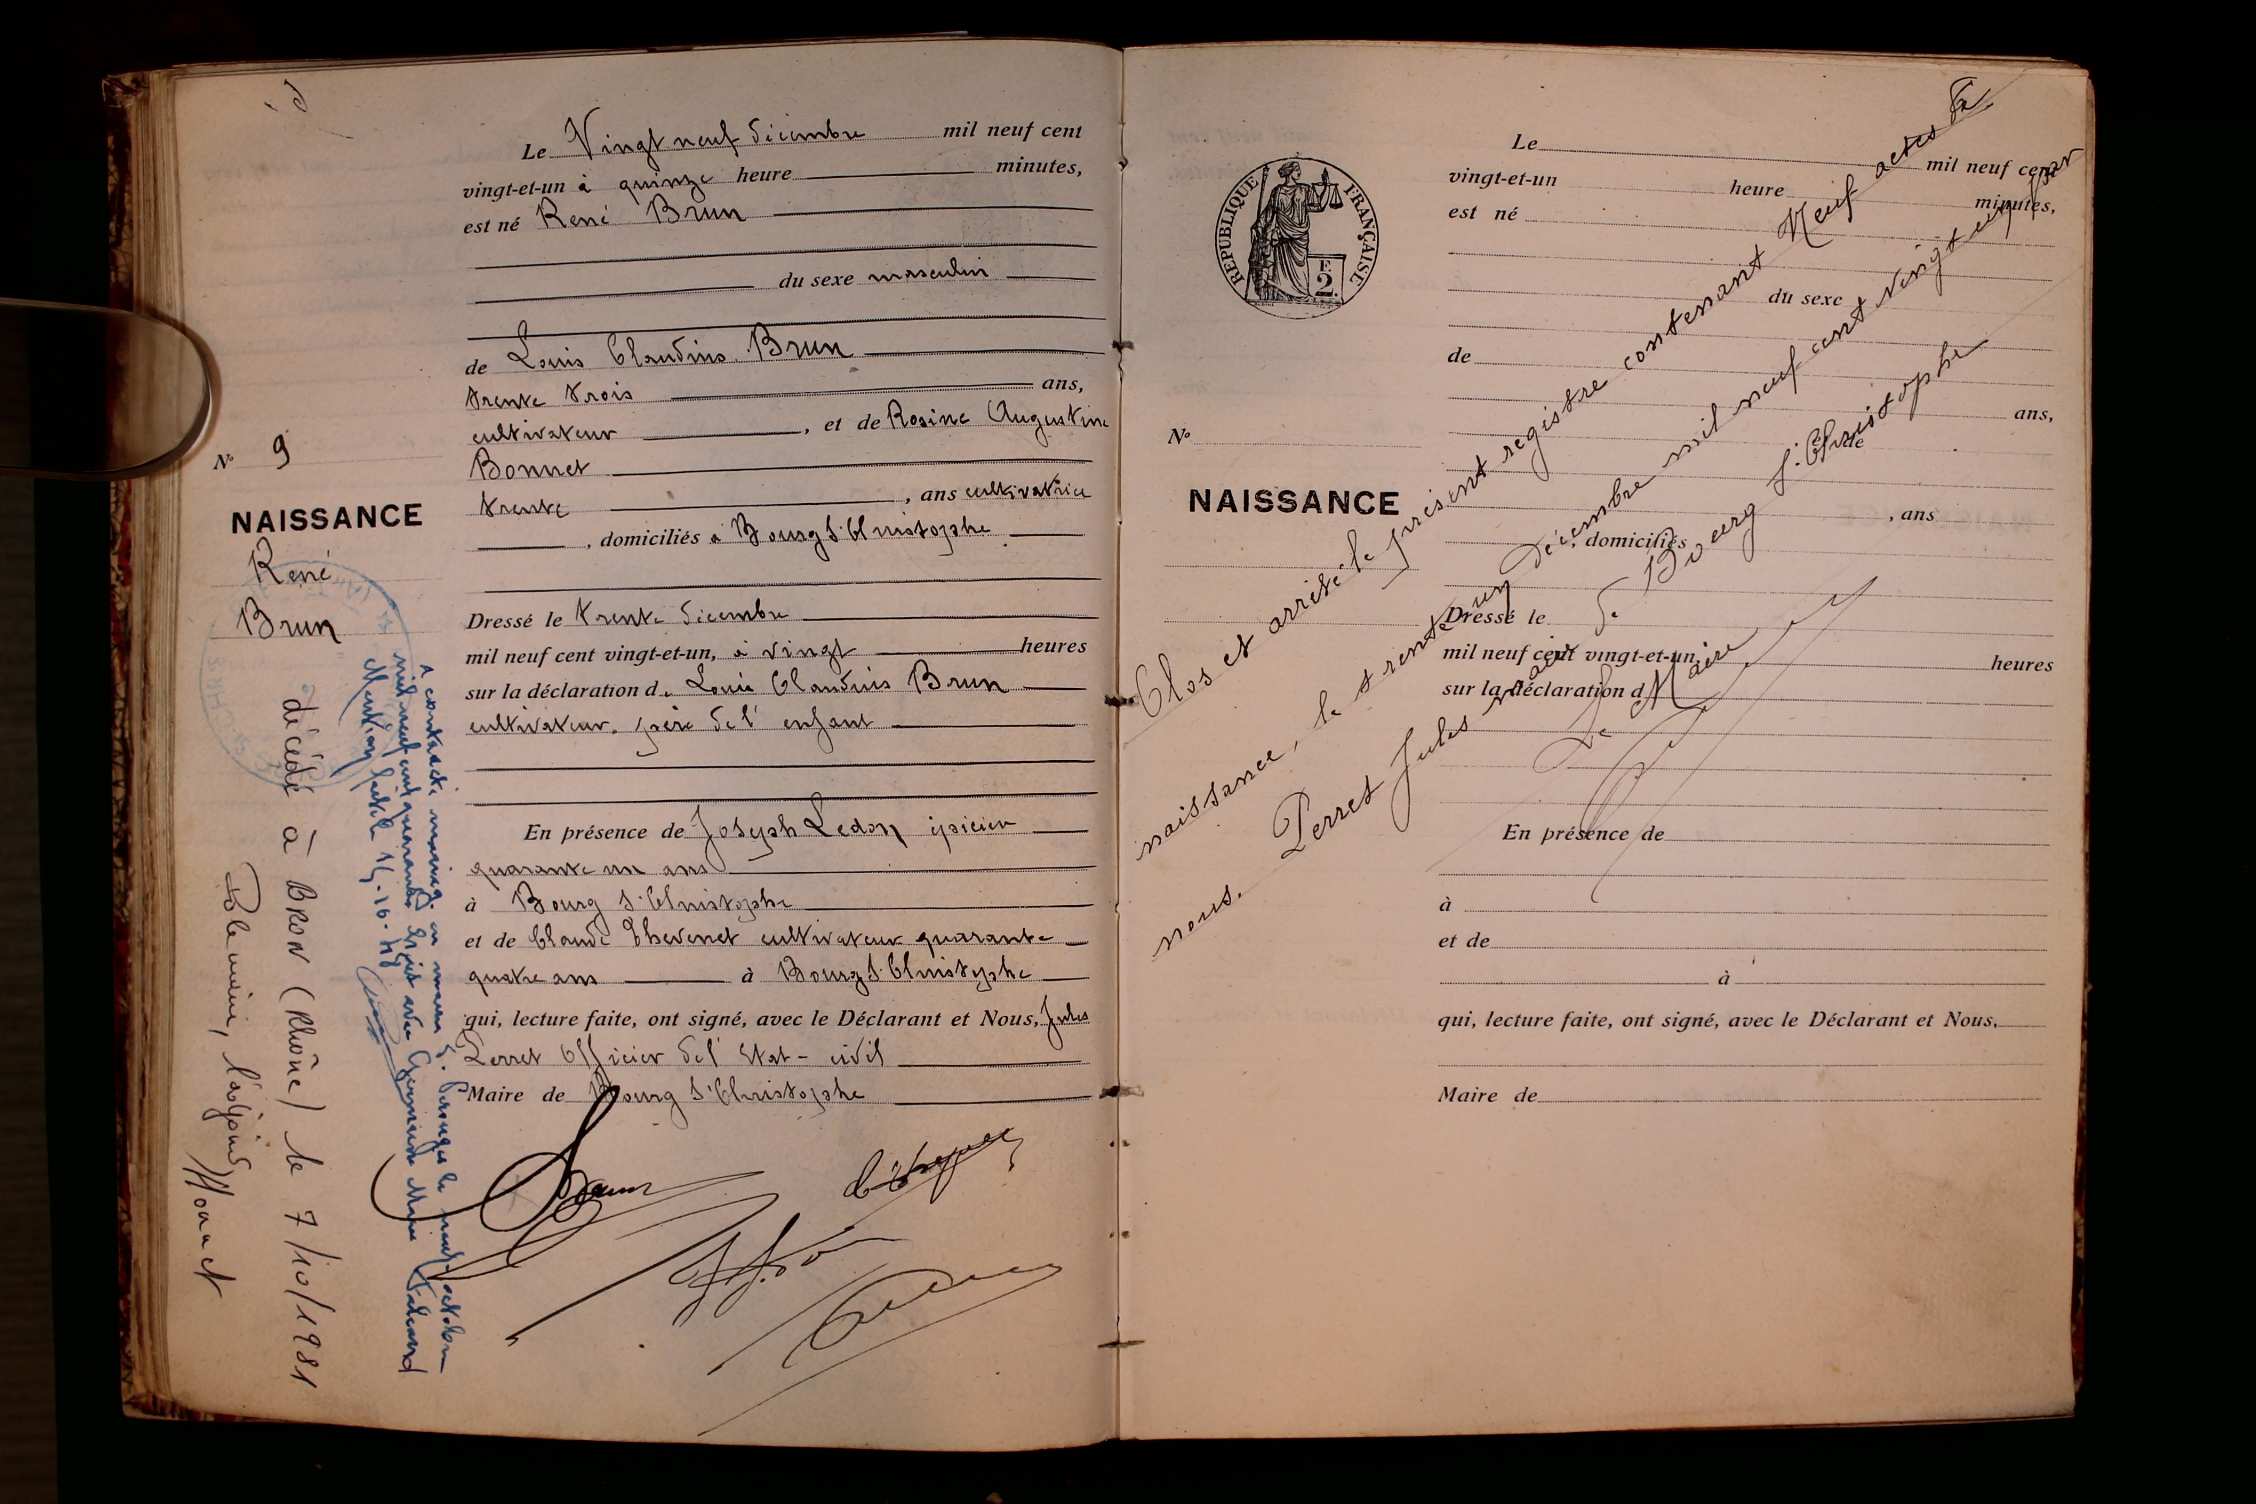 Le Vingt neuf décembre mil neuf cent
vingt-et-un à quinze heure minutes,
est né René Brun
du sexe masculin
de Louis Claudius Brun
trente trois ans,
cultivateur , et de Rosine Augustine
Bonnet
trente , ans cultivatrice
, domiciliés à Bourg St Christophe
Dressé le trente décembre
mil neuf cent vingt-et-un, à vingt heures
sur la déclaration de Louis Claudius Brun
cultivateur, père de l'enfant
En présence de Joseph Ledon épicier
quarante un ans
à Bourg St Christophe
et de Claude Thevenet cultivateur quarante
quatre ans à Bourg St Christophe
qui, lecture faite, ont signé, avec le Déclarant et Nous, Jules
Perret Officier de l'Etat-civil
Maire de Bourg St Christophe
Brun
No 9
NAISSANCE
René
Brun
A contracté mariage en mairie de Pérouges le neuf octobre
mil neuf cent quarante avec Germaine Marie
Mention faite le
décédé à BRON (Rhône) le 7/10/1981
l'adjoint
REPUBLIQUE FRANÇAISE
F
2
No
NAISSANCE
Le mil neuf cent
vingt-et-un heure minutes,
est né
du sexe
de
ans,
et de
, ans
, domiciliés
Dressé le
mil neuf cent vingt-et-un, heures
sur la déclaration d
En présence de
à
et de
à
qui, lecture faite, ont signé, avec le Déclarant et Nous,
Maire de
Clos et arrêté le présent registre contenant Neuf actes de
naissance, le trente-un décembre mil neuf cent vingt un par
nous, Perret Jules maire de Bourg St Christophe
Le Maire